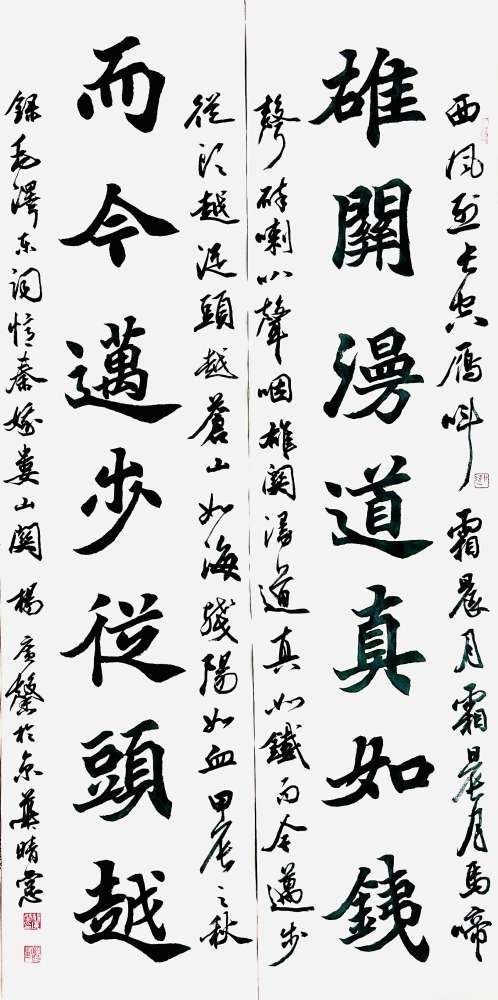 西風烈長空雁叫霜晨月霜晨月馬啼
雄關漫道真如銕
聲碎喇叭聲咽雄関漫道真如鐵而今邁步
從頭越從頭越蒼山如海殘陽如血甲辰之秋
而今邁步從頭越
錄毛澤東詞憶秦娥婁山関楊於京華晴窗